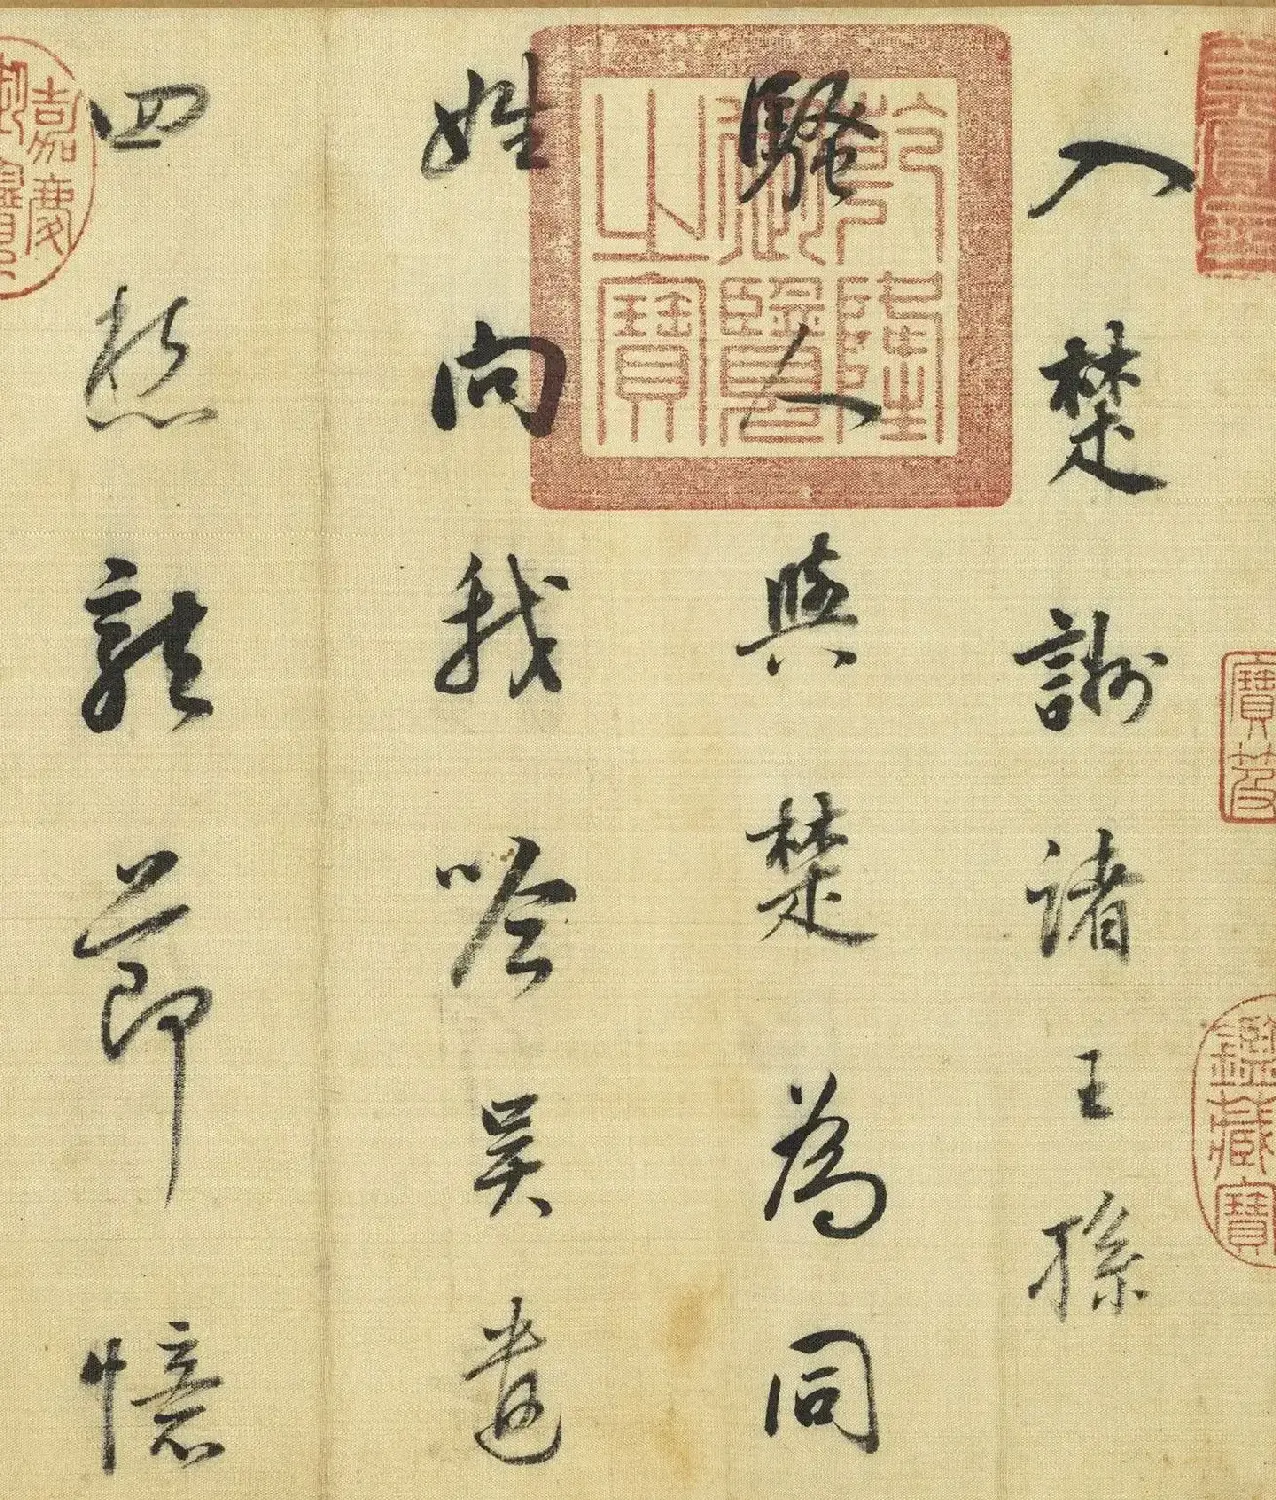 入楚謝諸王孫
騷人與楚為同
姓向我吟吳遺
四愁龍節憶
乾隆御覽之寶
嘉慶御覽
寶笈
鑑藏寶